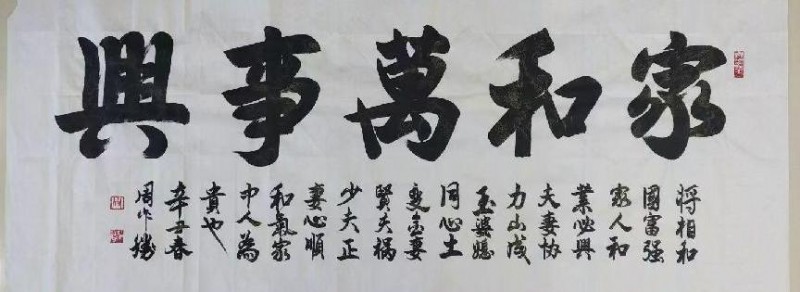 家和萬事興
將相和
國富强
家人和
業必興
夫妻协
力山成
玉婆媳
同心土
變金妻
賢夫禍
少夫正
妻心順
和氣家
中人為
貴也
辛丑春
周作勝